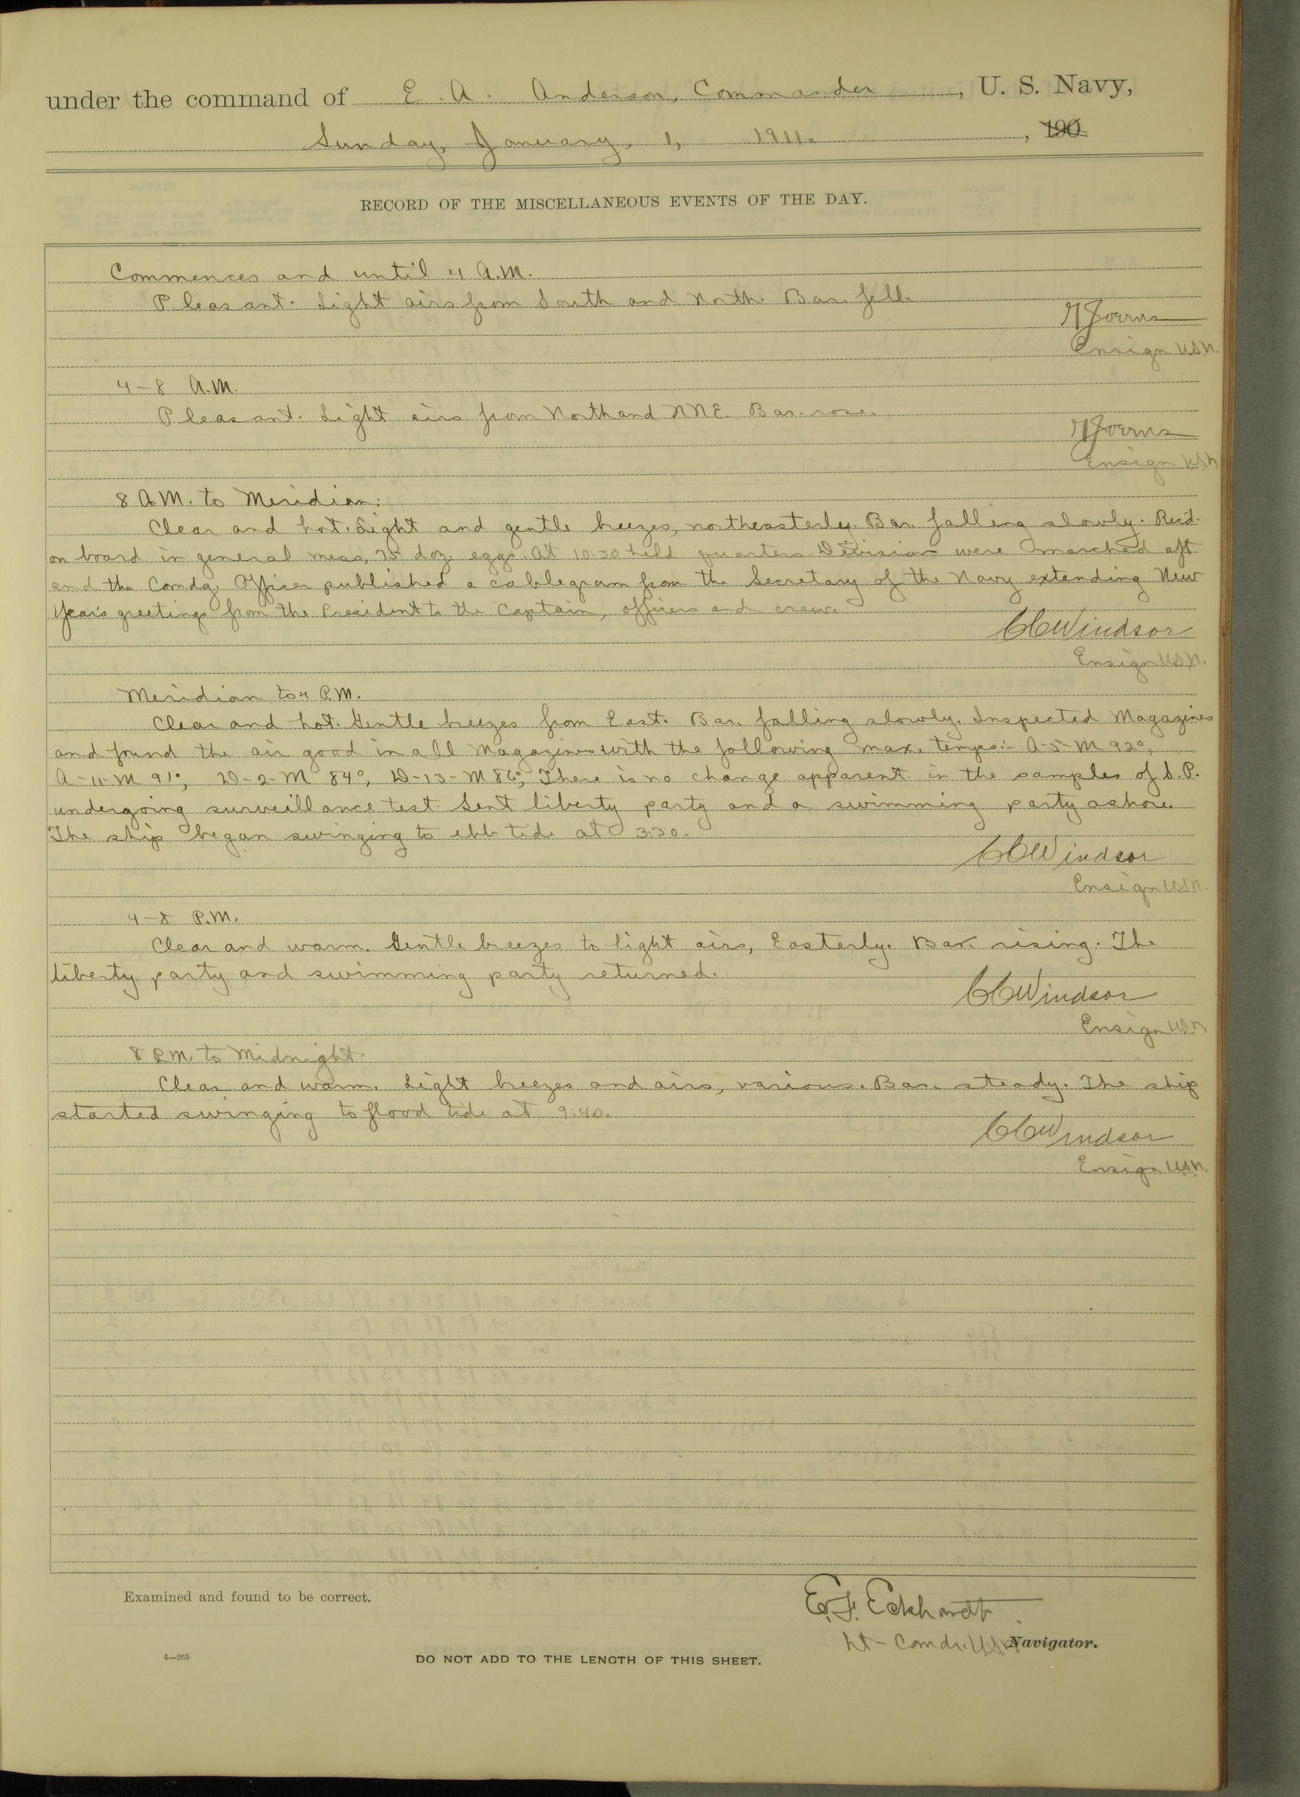 under the command of E. A. Anderson, Commander, U. S. Navy,
Sunday, January, 1, 1911. , 190
RECORD OF THE MISCELLANEOUS EVENTS OF THE DAY.
Commences and until 4 A.M.
Pleasant. Light airs from South and North. Bar. fell.
Ensign USN.
4-8 A.M.
Pleasant. Light airs from North and NNE. Bar. rose.
Ensign USN
8 A.M. to Meridian:
Clear and hot. Light and gentle breezes, northeasterly. Bar. falling slowly. Rec'd.
on board in general mess, 75 doz. eggs. At 10:30 held quarters. Division were marched aft
and the Comdg. Officer published a cablegram from the Secretary of the Navy extending New
Year's greetings from the President to the Captain, officers and crew.
CCWindsor
Ensign U.S.N.
Meridian to 4 P.M.
Clear and hot. Gentle breezes from East. Bar. falling slowly. Inspected Magazines
and found the air good in all Magazines with the following max. temps:- A-5-M 92°,
A-11-M 91°, D-2-M 84°, D-13-M 86°, There is no change apparent in the samples of S.P.
undergoing surveillance test. Sent liberty party and a swimming party ashore.
The ship began swinging to ebb tide at 3:30.
CCWindsor
Ensign U.S.N.
4-8 P.M.
Clear and warm. Gentle breezes to light airs, Easterly. Bar. rising. The
liberty party and swimming party returned.
CCWindsor
Ensign U.S.N
8 P.M. to Midnight.
Clear and warm. Light breezes and airs, various. Bar. steady. The ship
started swinging to flood tide at 9:40.
CCWindsor
Ensign U.S.N.
Examined and found to be correct.
E.F. Eckhardt
Lt-Comdr. U.S.N. Navigator.
4—265
DO NOT ADD TO THE LENGTH OF THIS SHEET.